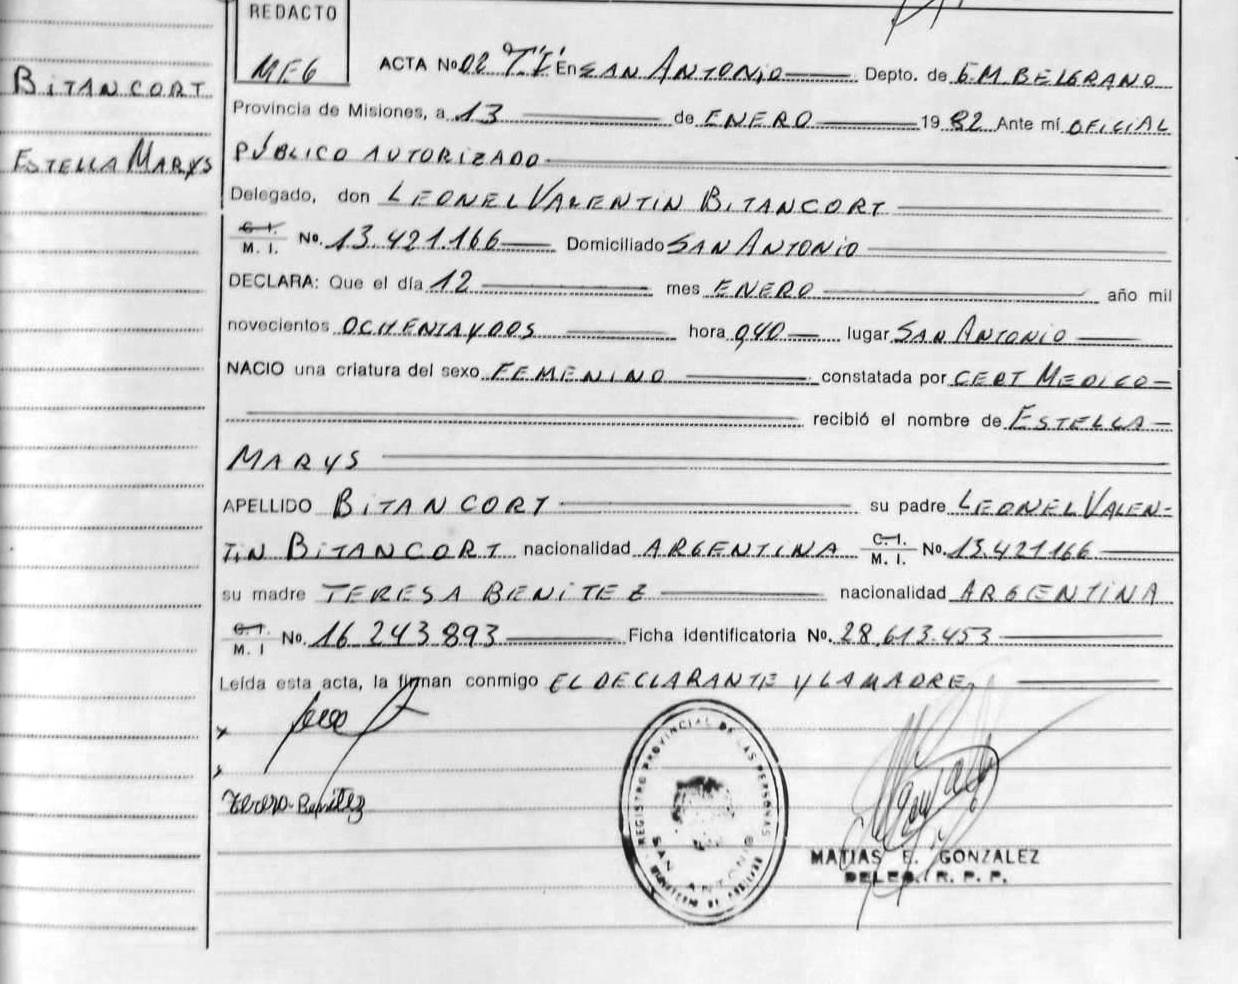 REDACTO
MEG
BITANCORT
ESTELLA MARYS
ACTA No 02 "T I" En SAN ANTONIO Depto. de G. M. BELGRANO
Provincia de Misiones, a 13 de ENERO 19 82 Ante mí OFICIAL
PÚBLICO AUTORIZADO
Delegado, don LEONEL VALENTIN BITANCORT
C. I.
M. I. No. 13.421.166 Domiciliado SAN ANTONIO
DECLARA: Que el día 12 mes ENERO año mil
novecientos OCHENTA Y DOS hora 0,40 lugar SAN ANTONIO
NACIO una criatura del sexo FEMENINO constatada por CERT MEDICO
recibió el nombre de ESTELLA
MARYS
APELLIDO BITANCORT su padre LEONEL VALEN-
TIN BITANCORT nacionalidad ARGENTINA C. I. M. I. No. 13.421.166
su madre TERESA BENITEZ nacionalidad ARGENTINA
C. I.
M. I No. 16.243.893 Ficha identificatoria No. 28.613.453
Leída esta acta, la firman conmigo EL DECLARANTE Y LA MADRE
Teresa Benitez
REGISTRO PROVINCIAL DE LAS PERSONAS
SAN ANTONIO
MATIAS E. GONZALEZ
DELEG. R. P. P.